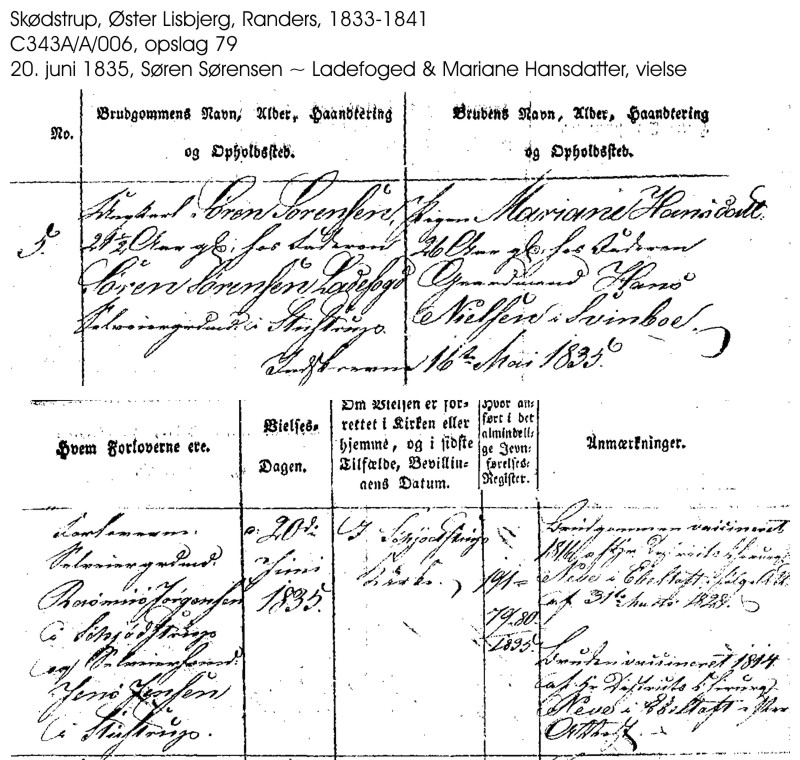 Skødstrup, Øster Lisbjerg, Randers, 1833-1841
C343A/A/006, opslag 79
20. juni 1835, Søren Sørensen ~ Ladefoged & Mariane Hansdatter, vielse
No.
Brudgommens Navn, Alder, Haandtering
og Opholdssted.
Brudens Navn, Alder, Haandtering
og Opholdssted.
5.
Ungkarl Søren Sørensen,
29½ Aar gl. hos Faderen
Søren Sørensen Ladefogd
Selveiergrmd. i Studstrup
Pigen Mariane Hansdatt.
26 Aar gl. hos Faderen
Gaardmand Hans
Nielsen i Svinboe.
Indskreven 16de Mai 1835.
Hvem Forloverne ere.
Vielses-
Dagen.
Om Vielsen er for-
rettet i Kirken eller
hjemme, og i sidste
Tilfælde, Bevillin-
gens Datum.
Hvor an-
ført i det
almindeli-
ge Jevn-
førelses-
Register.
Anmærkninger.
Forloverne
Selveiergrmd.
Rasmus Jørgensen
i Schjødstrup
og Selveiermd.
Jens Jensen
i Studstrup.
d. 20de
Juni
1835.
I Schjødstrup
Kirke.
79-80
1835.
Brudgommen vaccineret
1816 af Distriets Chirurg
Neve i Ebeltoft
af 31te 1828.
Bruden vaccineret 1814
af Districts Chirurg
Neve i Ebeltoft
Attest.